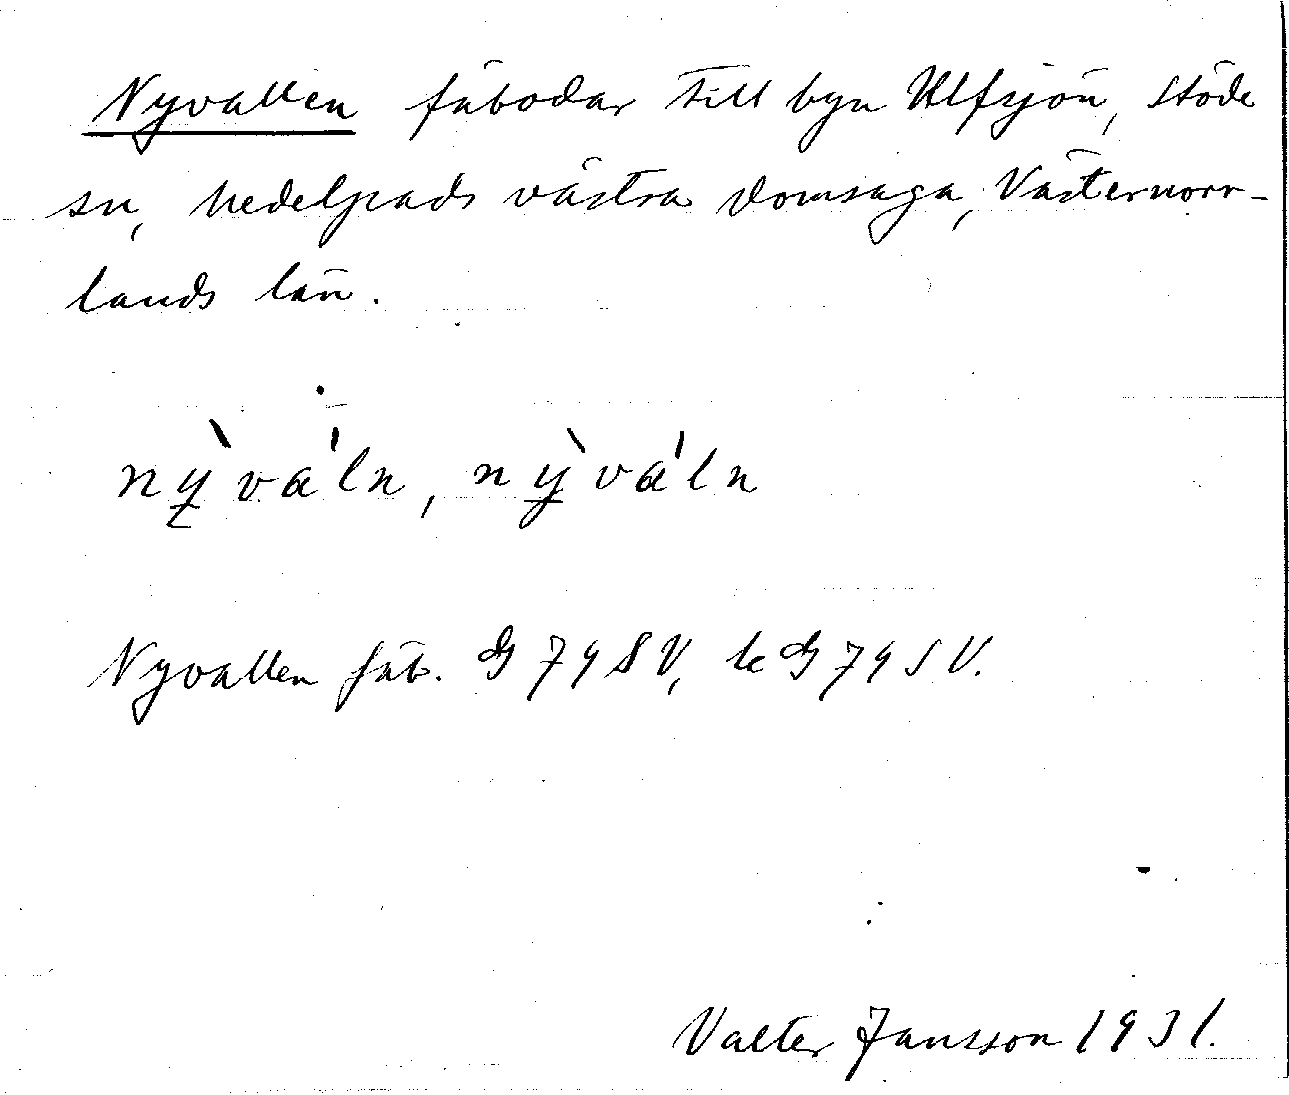 Nyvallen fäbodar till byn Ulfsjön, Stöde
sn, Medelpads västra domsaga, Västernorr-
lands län.
nỳvaˈln, nỳvaˈln
Nyvallen fäb. G 79 SV, k G 79 SV.
Valter Jansson 1931.